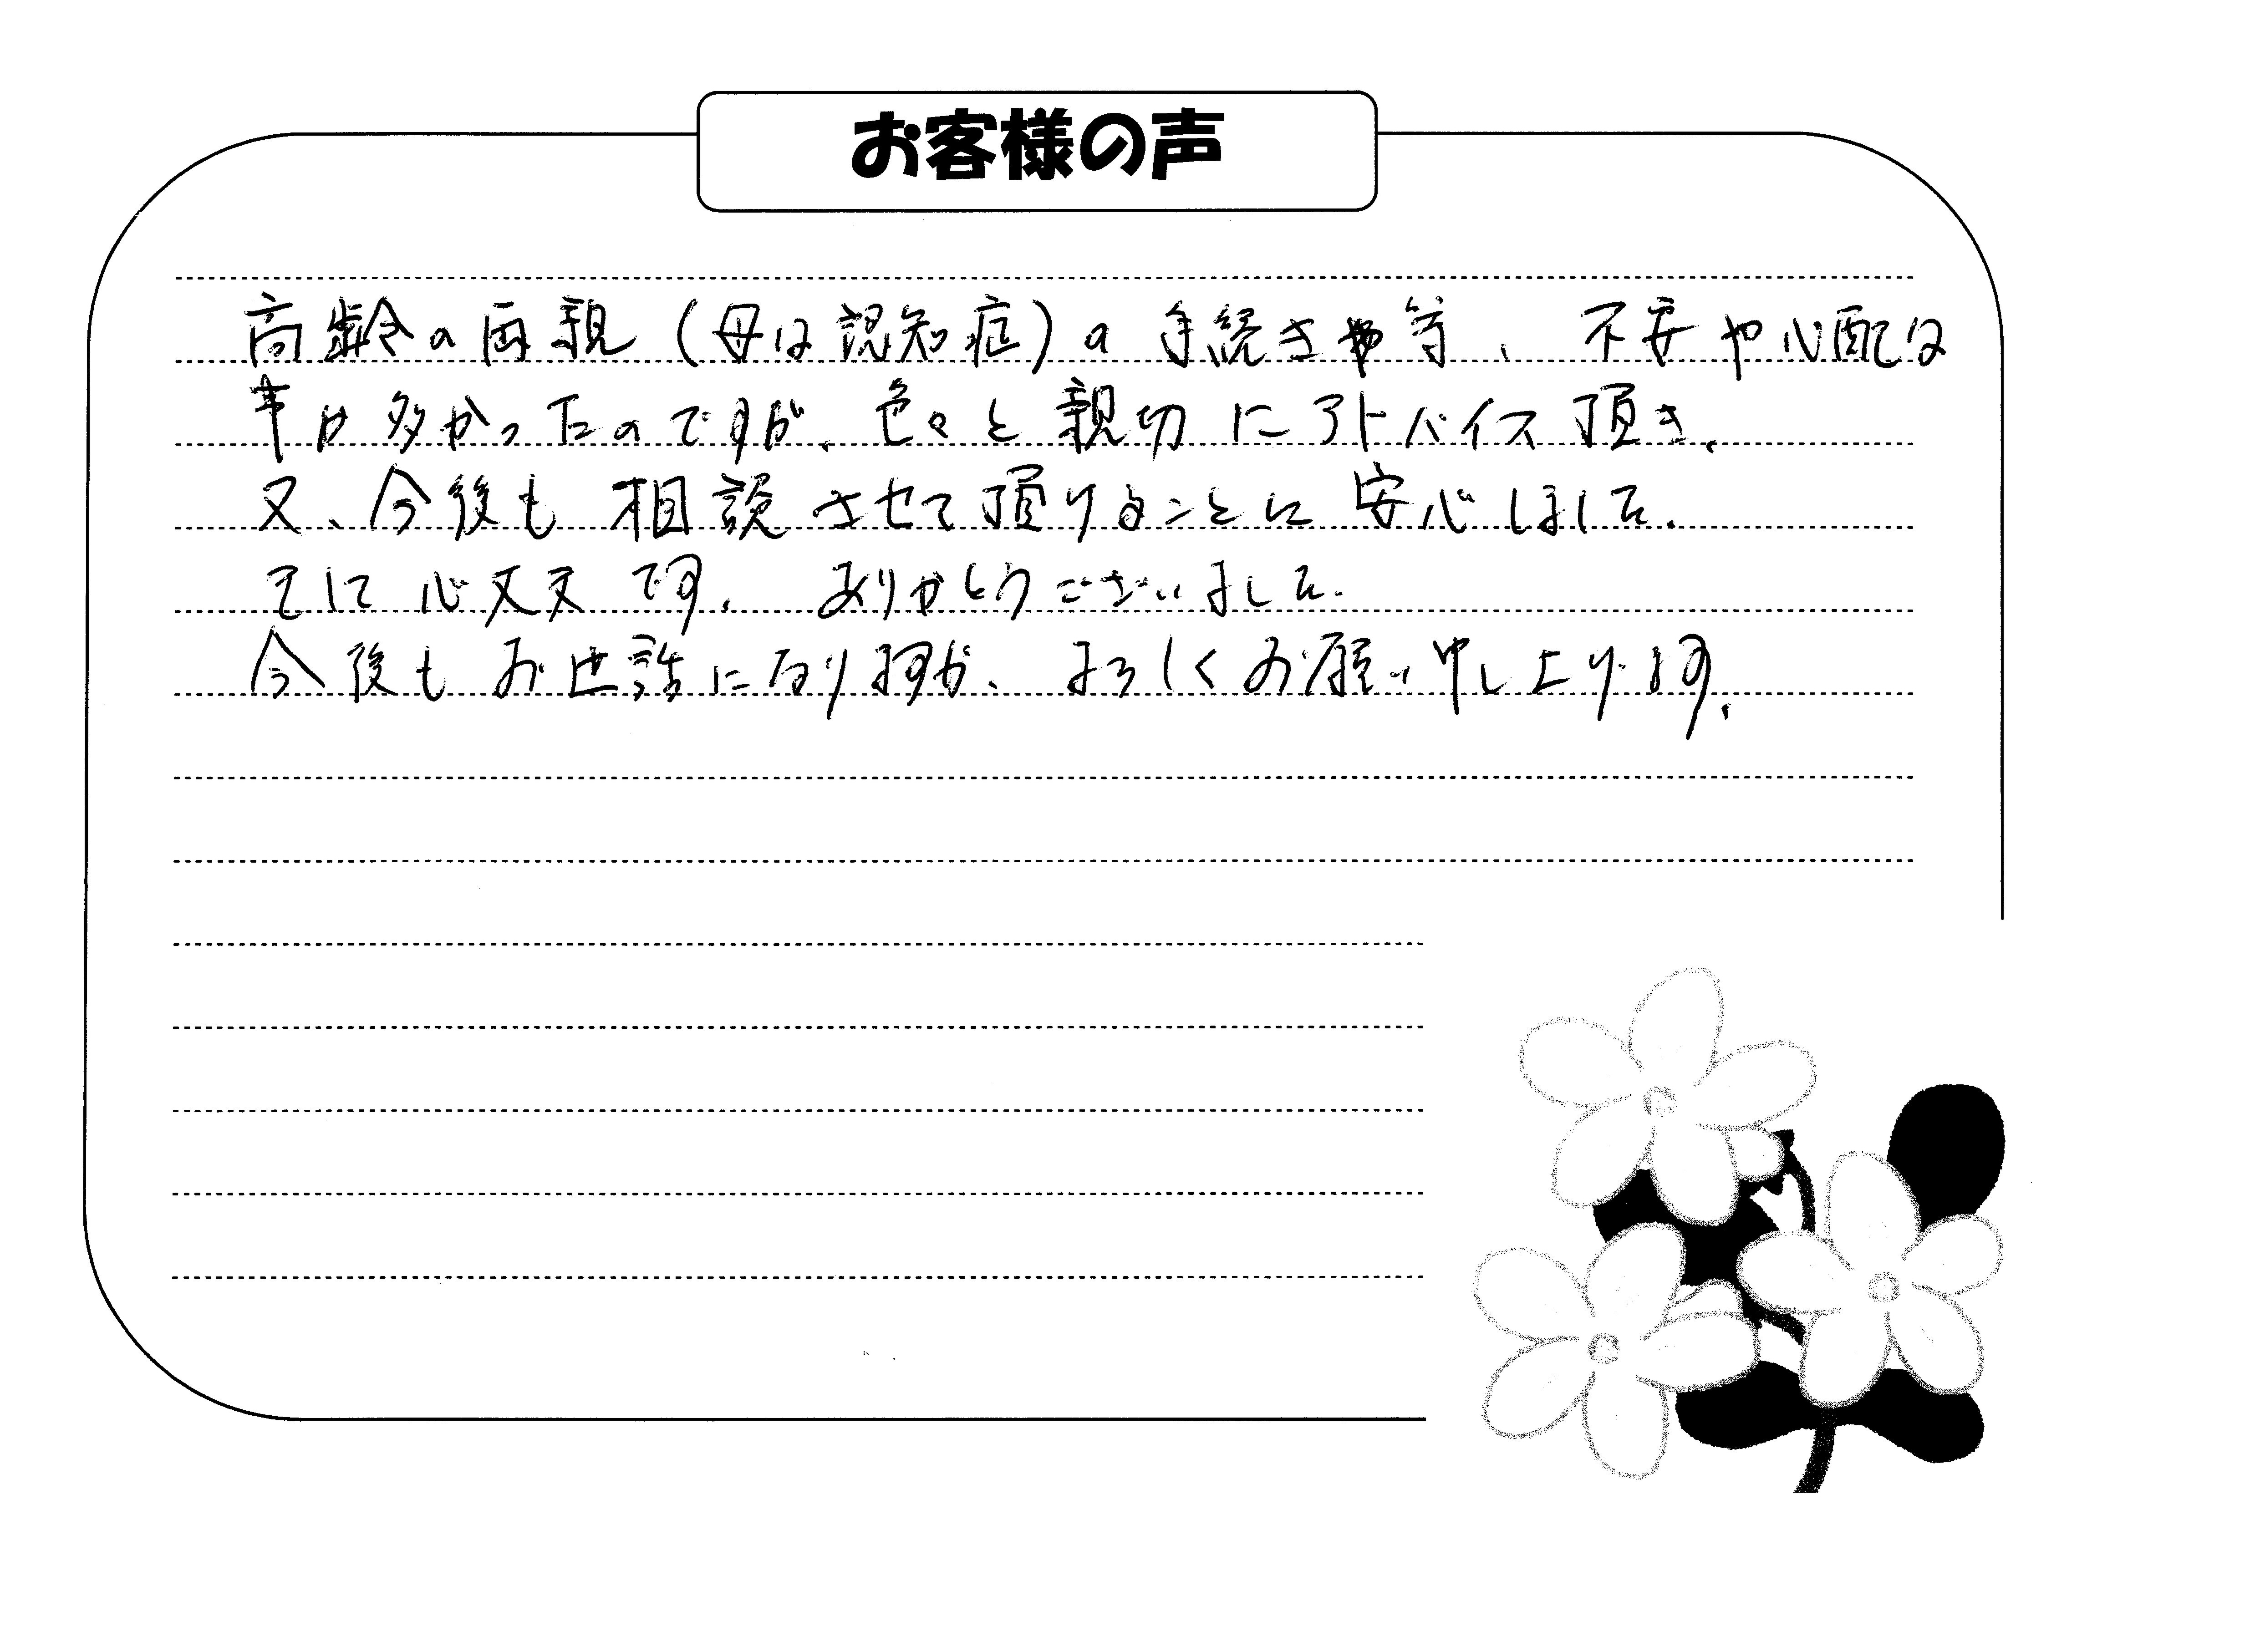 お客様の声
高齢の両親(母は認知症)の手続き等、不安や心配な
事が多かったのですが、色々と親切にアドバイス頂き、
又、今後も相談させて頂けることに安心しました。
とても心丈夫です。ありがとうございました。
今後もお世話になりますが、よろしくお願い申し上げます。